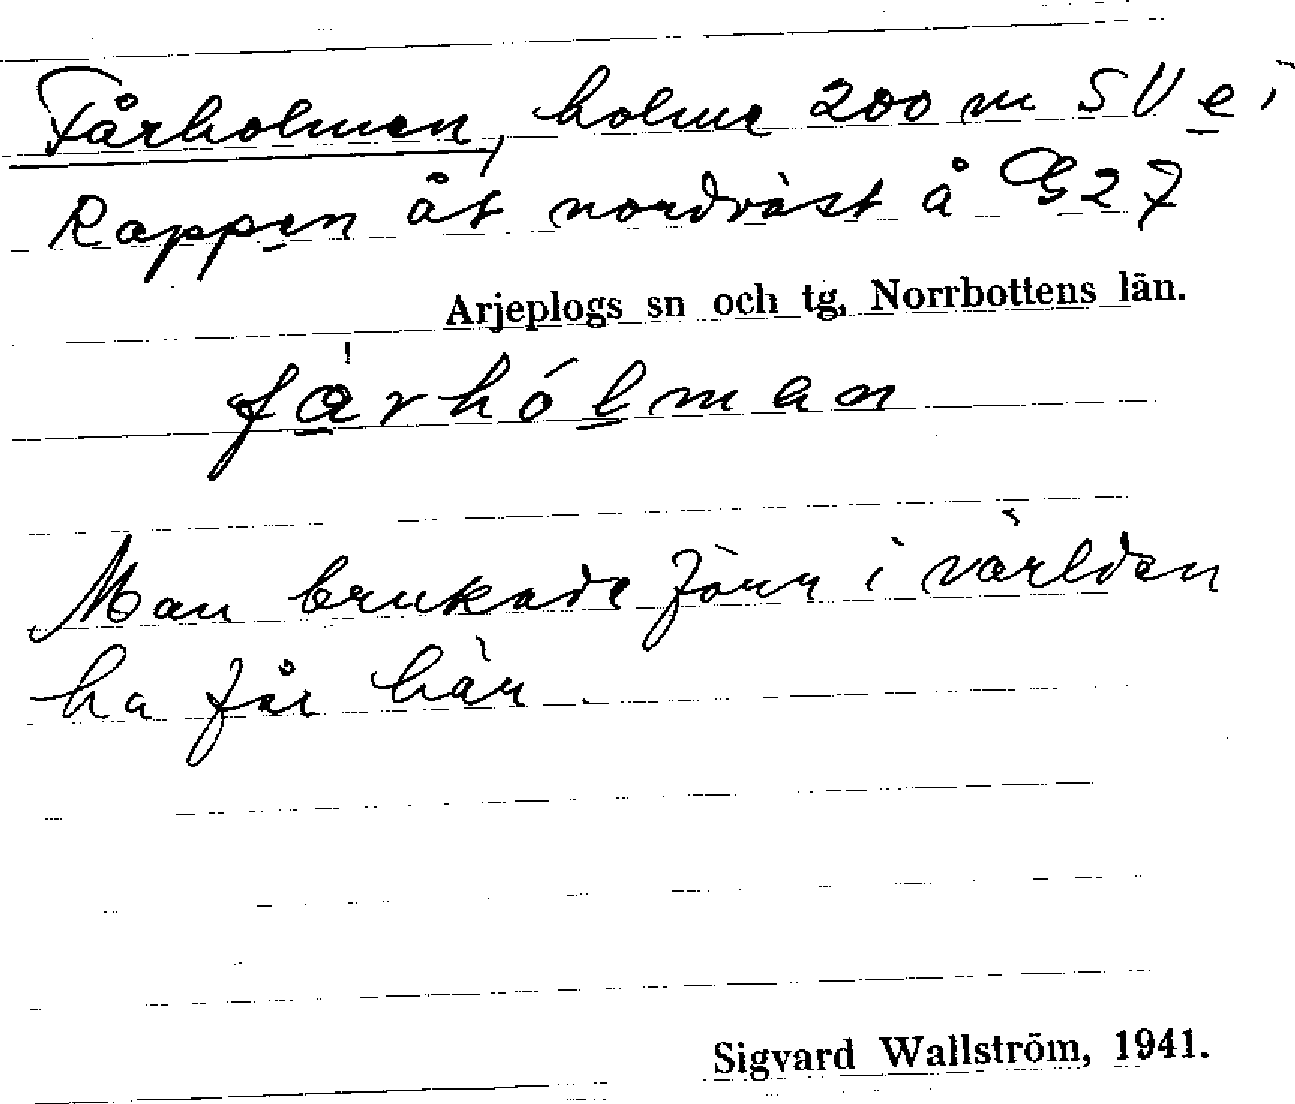 Fårholmen, holme 200 m SV e i
Rappen åt nordväst å G27
Arjeplogs sn och tg, Norrbottens län.
fårhólman
Man brukade förr i världen
ha får här
Sigvard Wallström, 1941.